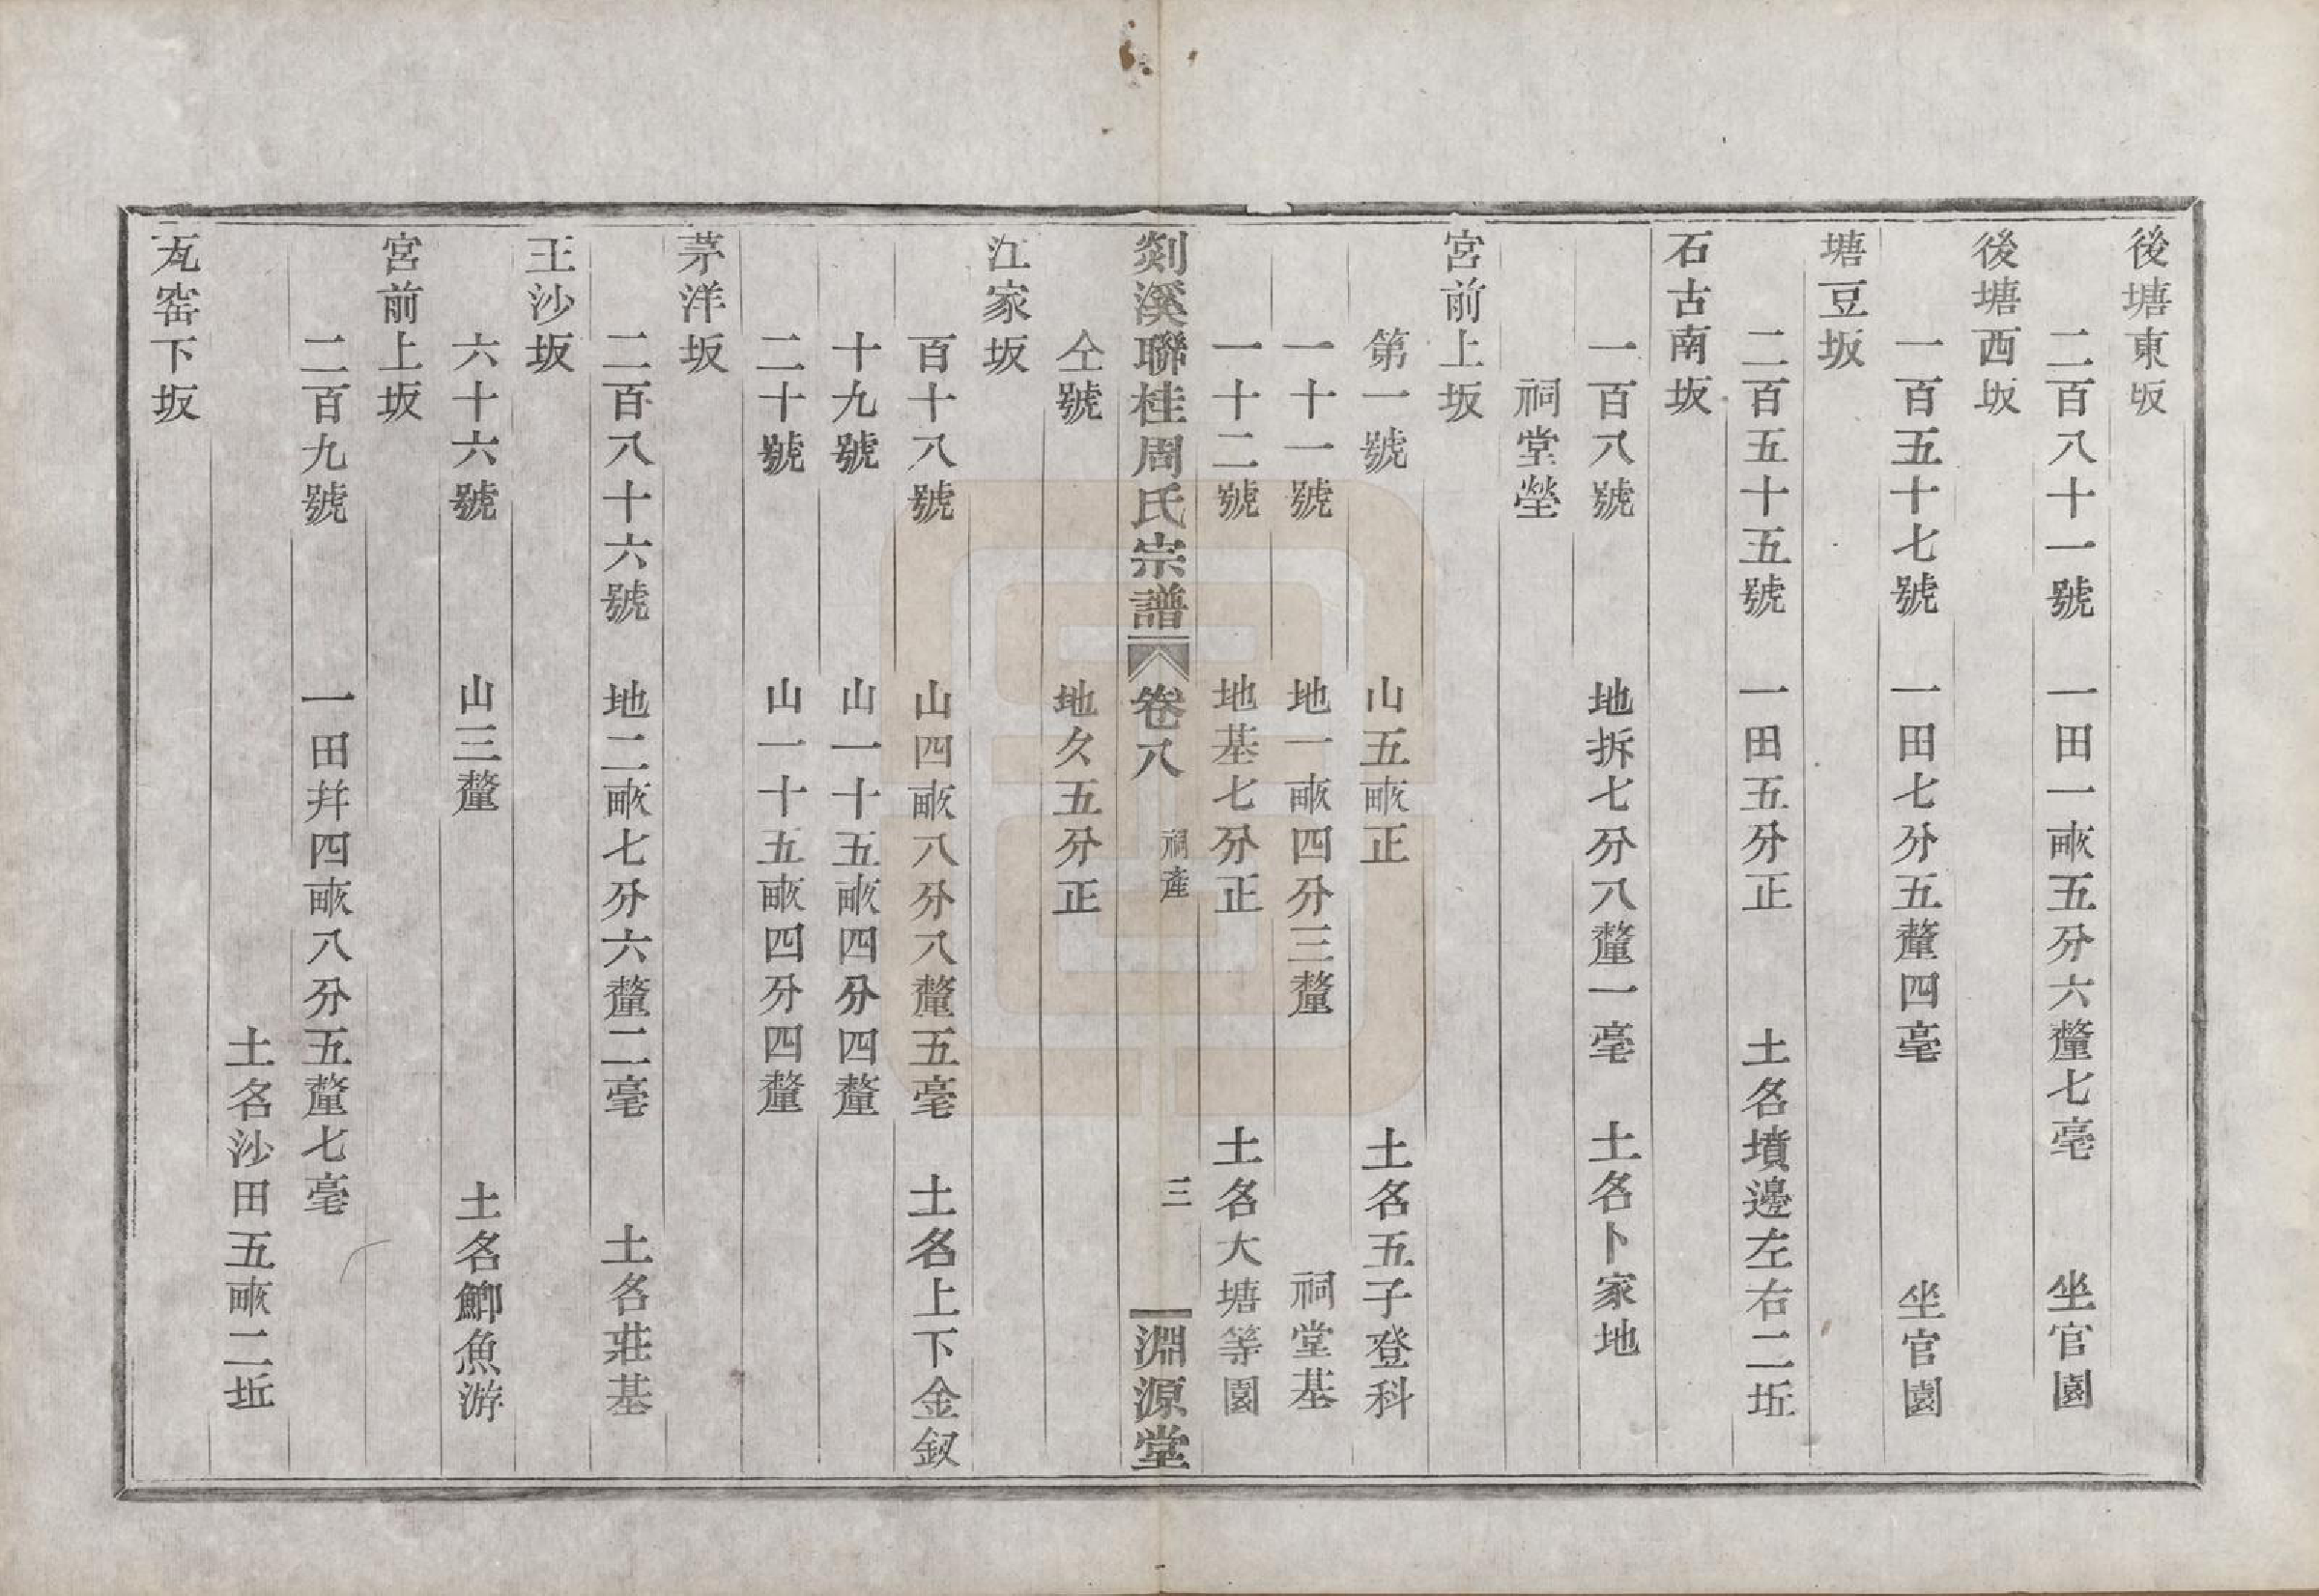 後塘東坂
二百八十一號　一田一畝五分六釐七毫　坐官園
後塘西坂
一百五十七號　一田七分五釐四毫　坐官園
塘豆坂
二百五十五號　一田五分正　土名墳邊左右二坵
石古南坂
一百八號　地拆七分八釐一毫　土名卜家地
祠堂塋
宮前上坂
第一號　山五畝正　土名五子登科
一十一號　地一畝四分三釐　祠堂基
一十二號　地基七分正　土名大塘等園
剡溪聯桂周氏宗譜　卷八　祠產　三　淵源堂
仝號　地欠五分正
江家坂
百十八號　山四畝八分八釐五毫　土名上下金釵
十九號　山一十五畝四分四釐
二十號　山一十五畝四分四釐
茅洋坂
二百八十六號　地二畝七分六釐二毫　土名莊基
王沙坂
六十六號　山三釐　土名鯽魚游
宮前上坂
二百九號　一田幷四畝八分五釐七毫
土名沙田五畝二坵
瓦窑下坂